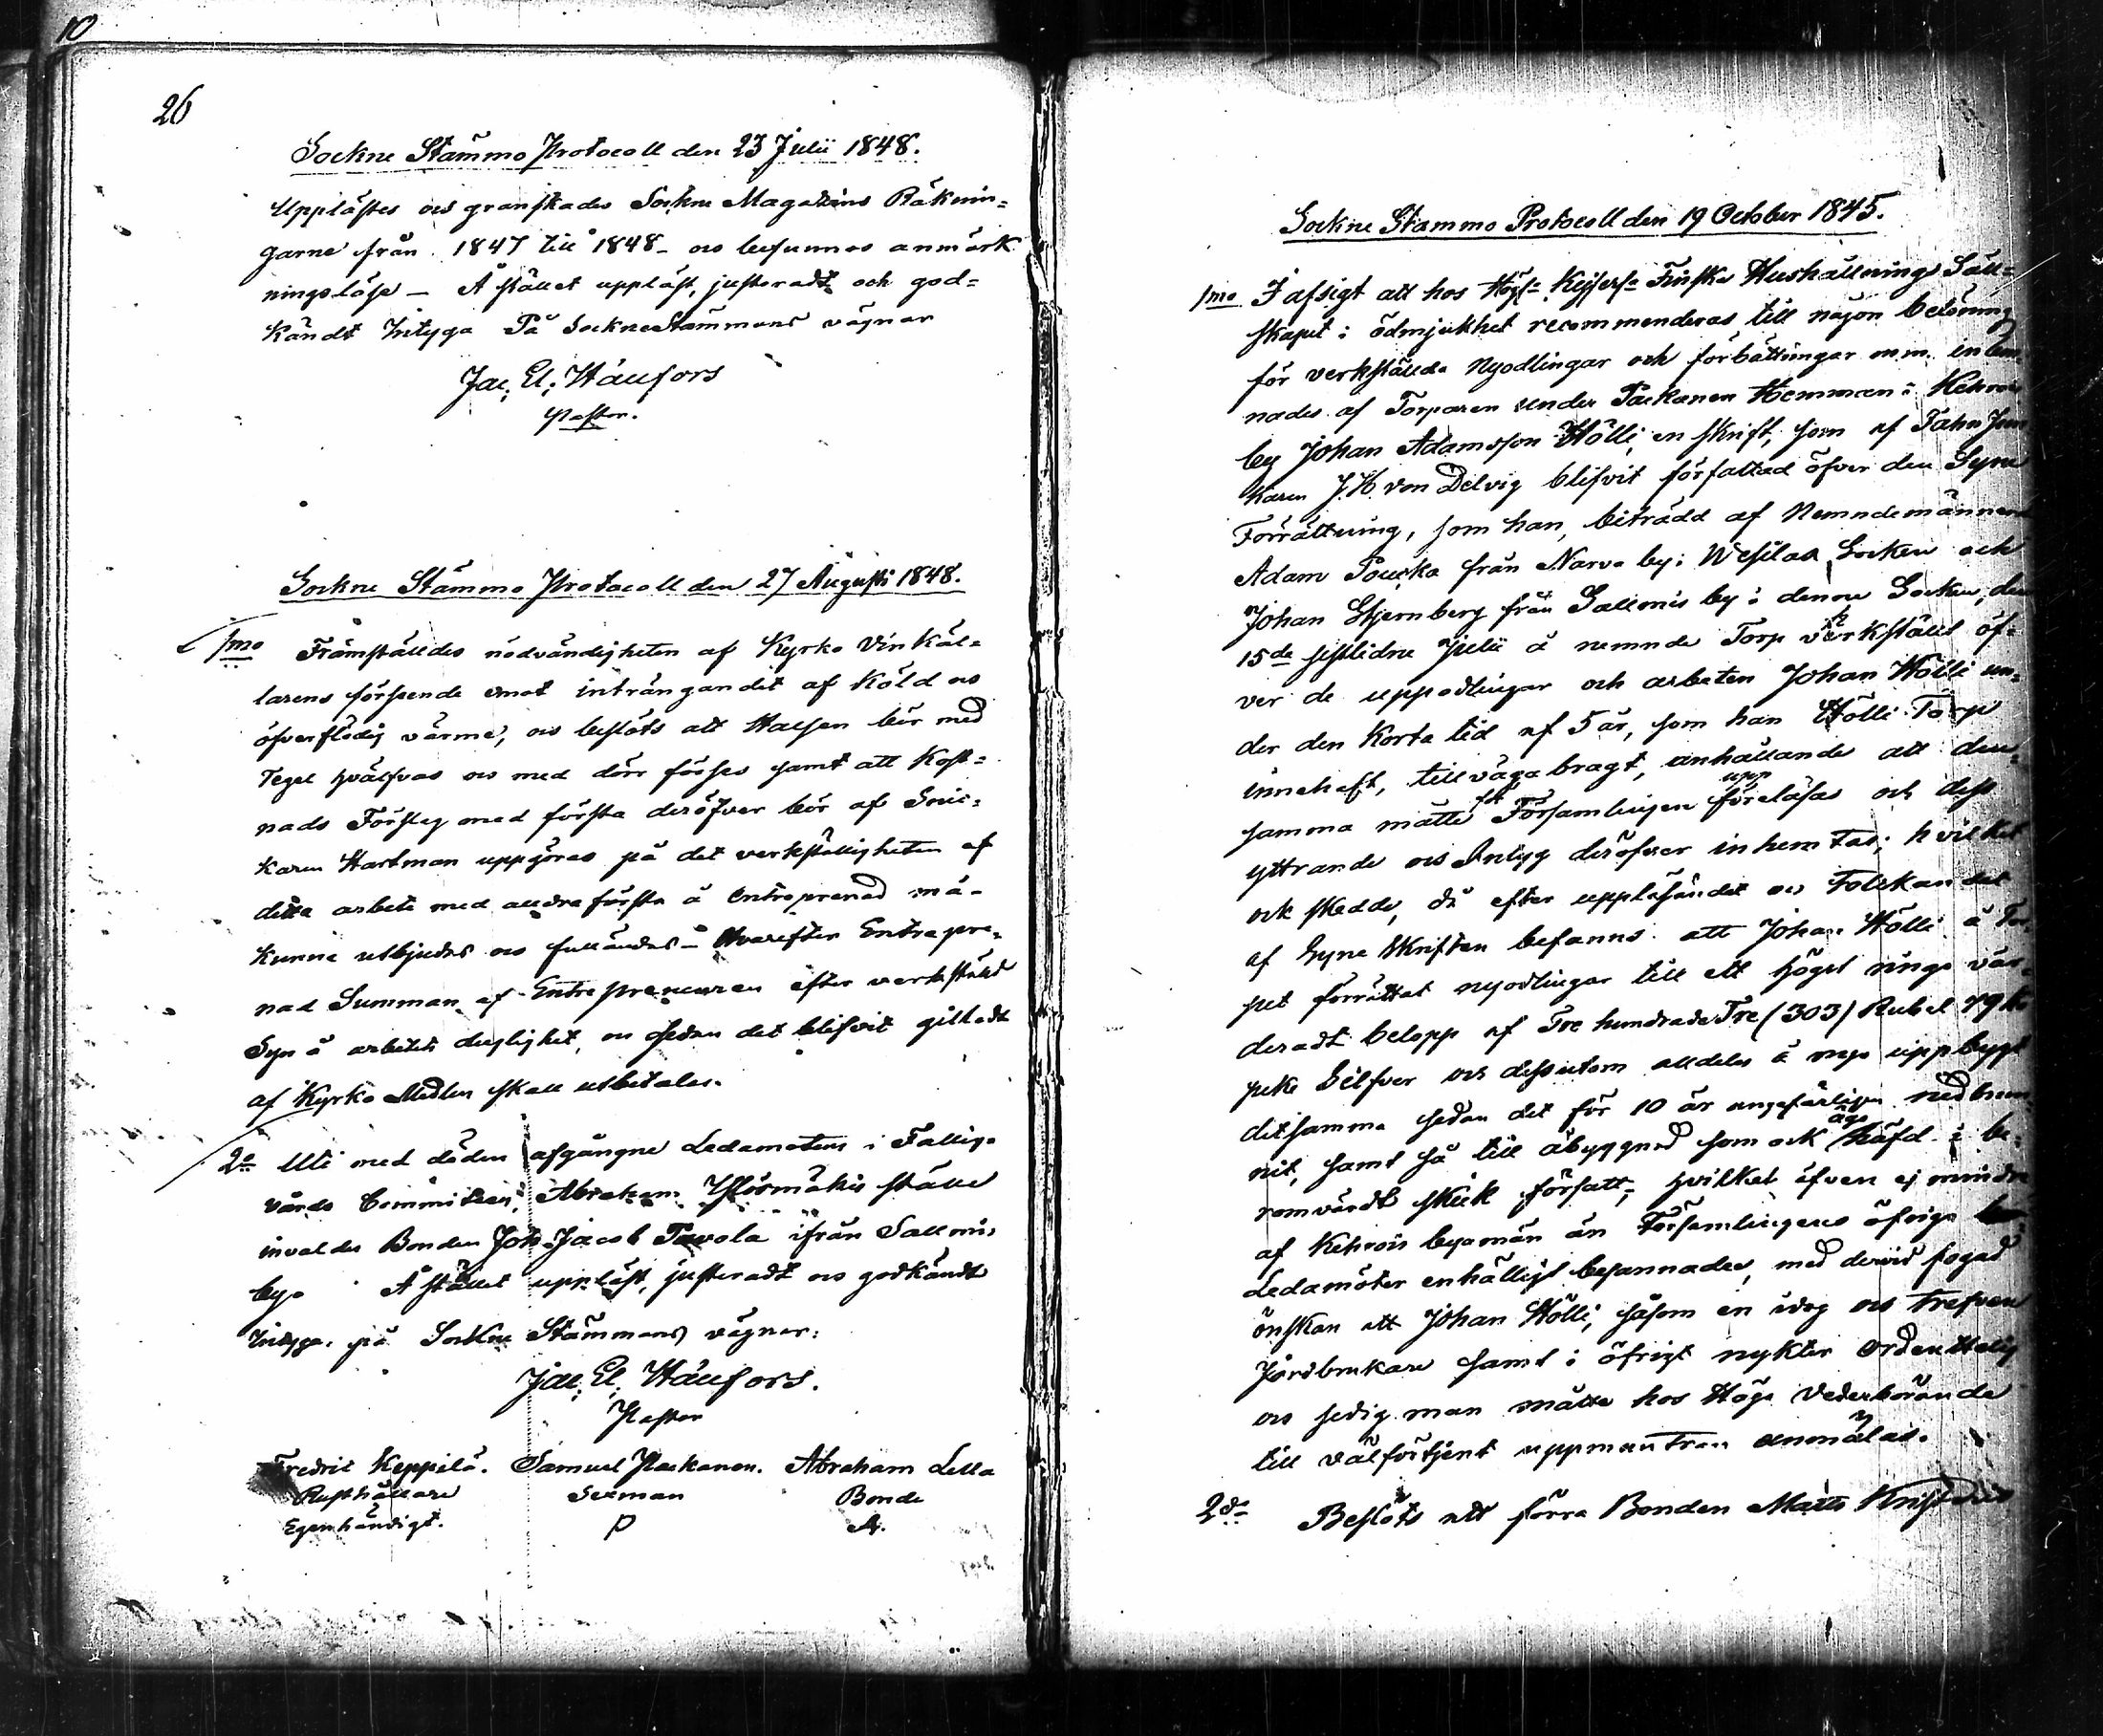 10
26
Sockne Stämmo Protocoll den 23 Julii 1848.
Upplästes och granskades Sockne Magazins Räknin=
garne från 1847 till 1848 - och befunnos anmärk
ningslöse - Å stället uppläst, justeradt och god=
kändt Intyga På SockneStämmans vägnar
Jac. El. Häufors
Pastor.
Sockne Stämmo Protocoll den 27 Augusti 1848.
1mo Framställdes nödvändigheten af Kyrko Vin Käl=
larens förseende emot inträngandet af Köld och
öfverflödig värme, och beslöts att Halsen bör med
Tegel hvälfvas och med dörr förses samt att Kost=
nads Förslag med första deröfver bör af Snic=
karen Hartman uppgöras på det verkställigheten af
detta arbete med alldraförsta å Entreprenad må=
kunna utbjudas och fulländas - Hvarefter Entrepre=
nad Summan af Entrepreneuren efter verkställd
Syn å arbetets duglighet, och sedan det blifvit gilladt
af Kyrko Medlen skall utbetalas.
2o Uti med döden afgångne Ledamotens i Fattig=
vårds Committeen, Abraham Ylösmäkis ställe
invaldes Bonden Joh. Jacob Tavola ifrån Sallmis
by. Å stället uppläst, justeradt och godkändt
Intyga på Sockne Stämmans vägnar:
Jac. El. Häufors.
Pastor
Fredric Keppilä. Samuel Packanen. Abraham Lella
Rusthållare Sexman Bonde
Egenhändigt. P A.
Sockne Stämmo Protocoll den 19 October 1845.
1mo I afsigt att hos Höga Kejserl= Finska Hushållnings Säll=
skapet i ödmjukhet recommenderas till någon belöning
för verkställda Nyodlingar och förbättringar m.m. inläm
nades af Torparen under Packanen Hemman i Kehrois
by Johan Adamsson Hölli, en skrift, som af Fahn Jun
karen J.H. von Delvig blifvit författad öfver den Syne
Förrättning, som han, biträdd af Nemndemännerne
Adam Poucka från Narva by i Wesilax Socken och
Johan Stjernberg från Sallmis by i denne Socken, den
15de sistlidne Julii å nemnde Torp verkställt öf=
ver de uppodlingar och arbeten Johan Hölli un=
der den korta tid af 5 år, som han Hölli Torp
innehaft, tillvägabragt, anhållande att den=
samma måtte för Församlingen uppläsas och dess
yttrande och Intyg deröfver inhemtas; hvilket
ock skedde, då efter uppläsandet och Tolckandet
af Syne Skriften befanns att Johan Hölli å Tor
pet förrättat nyodlingar till ett högst ringa vär=
deradt belopp af Tre hundrade Tre (303) Rubel 79 ko
peke Silfver och dessutom alldeles å nyo uppbygt
detsamma sedan det för 10 år ungefärligen nedbrun
nit, samt så till åbyggnad som ock ägo häfd i be=
römvärdt skick försatt, hvilket äfven ej mindre
af Kehrois byamän än Församlingens öfriga
Ledamöter enhälligt besannades, med dervid fogad
önskan att Johan Hölli, såsom en idog och trefven
Jordbrukare samt i öfrigt nykter ordenttelig
och sedig man måtte hos Höga Vederbörande
till välförtjent uppmuntran anmälas.
2do Beslöts att förra Bonden Matts